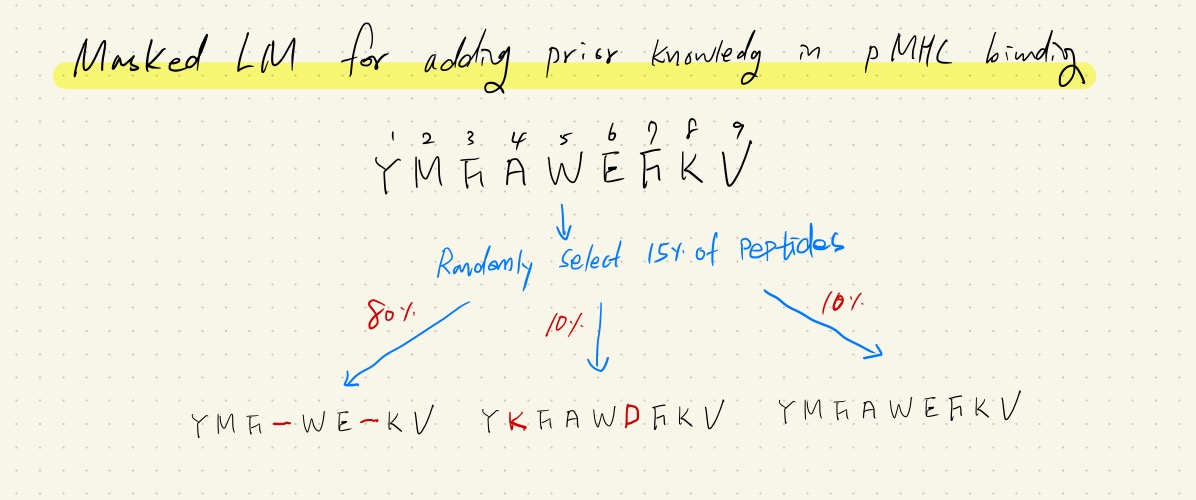 Masked LM for adding prior knowledg in pMHC binding
1 2 3 4 5 6 7 8 9
Y M F A W E F K V
Randomly select 15% of peptides
80% 10% 10%
Y M F - W E - K V Y K F A W D F K V Y M F A W E F K V